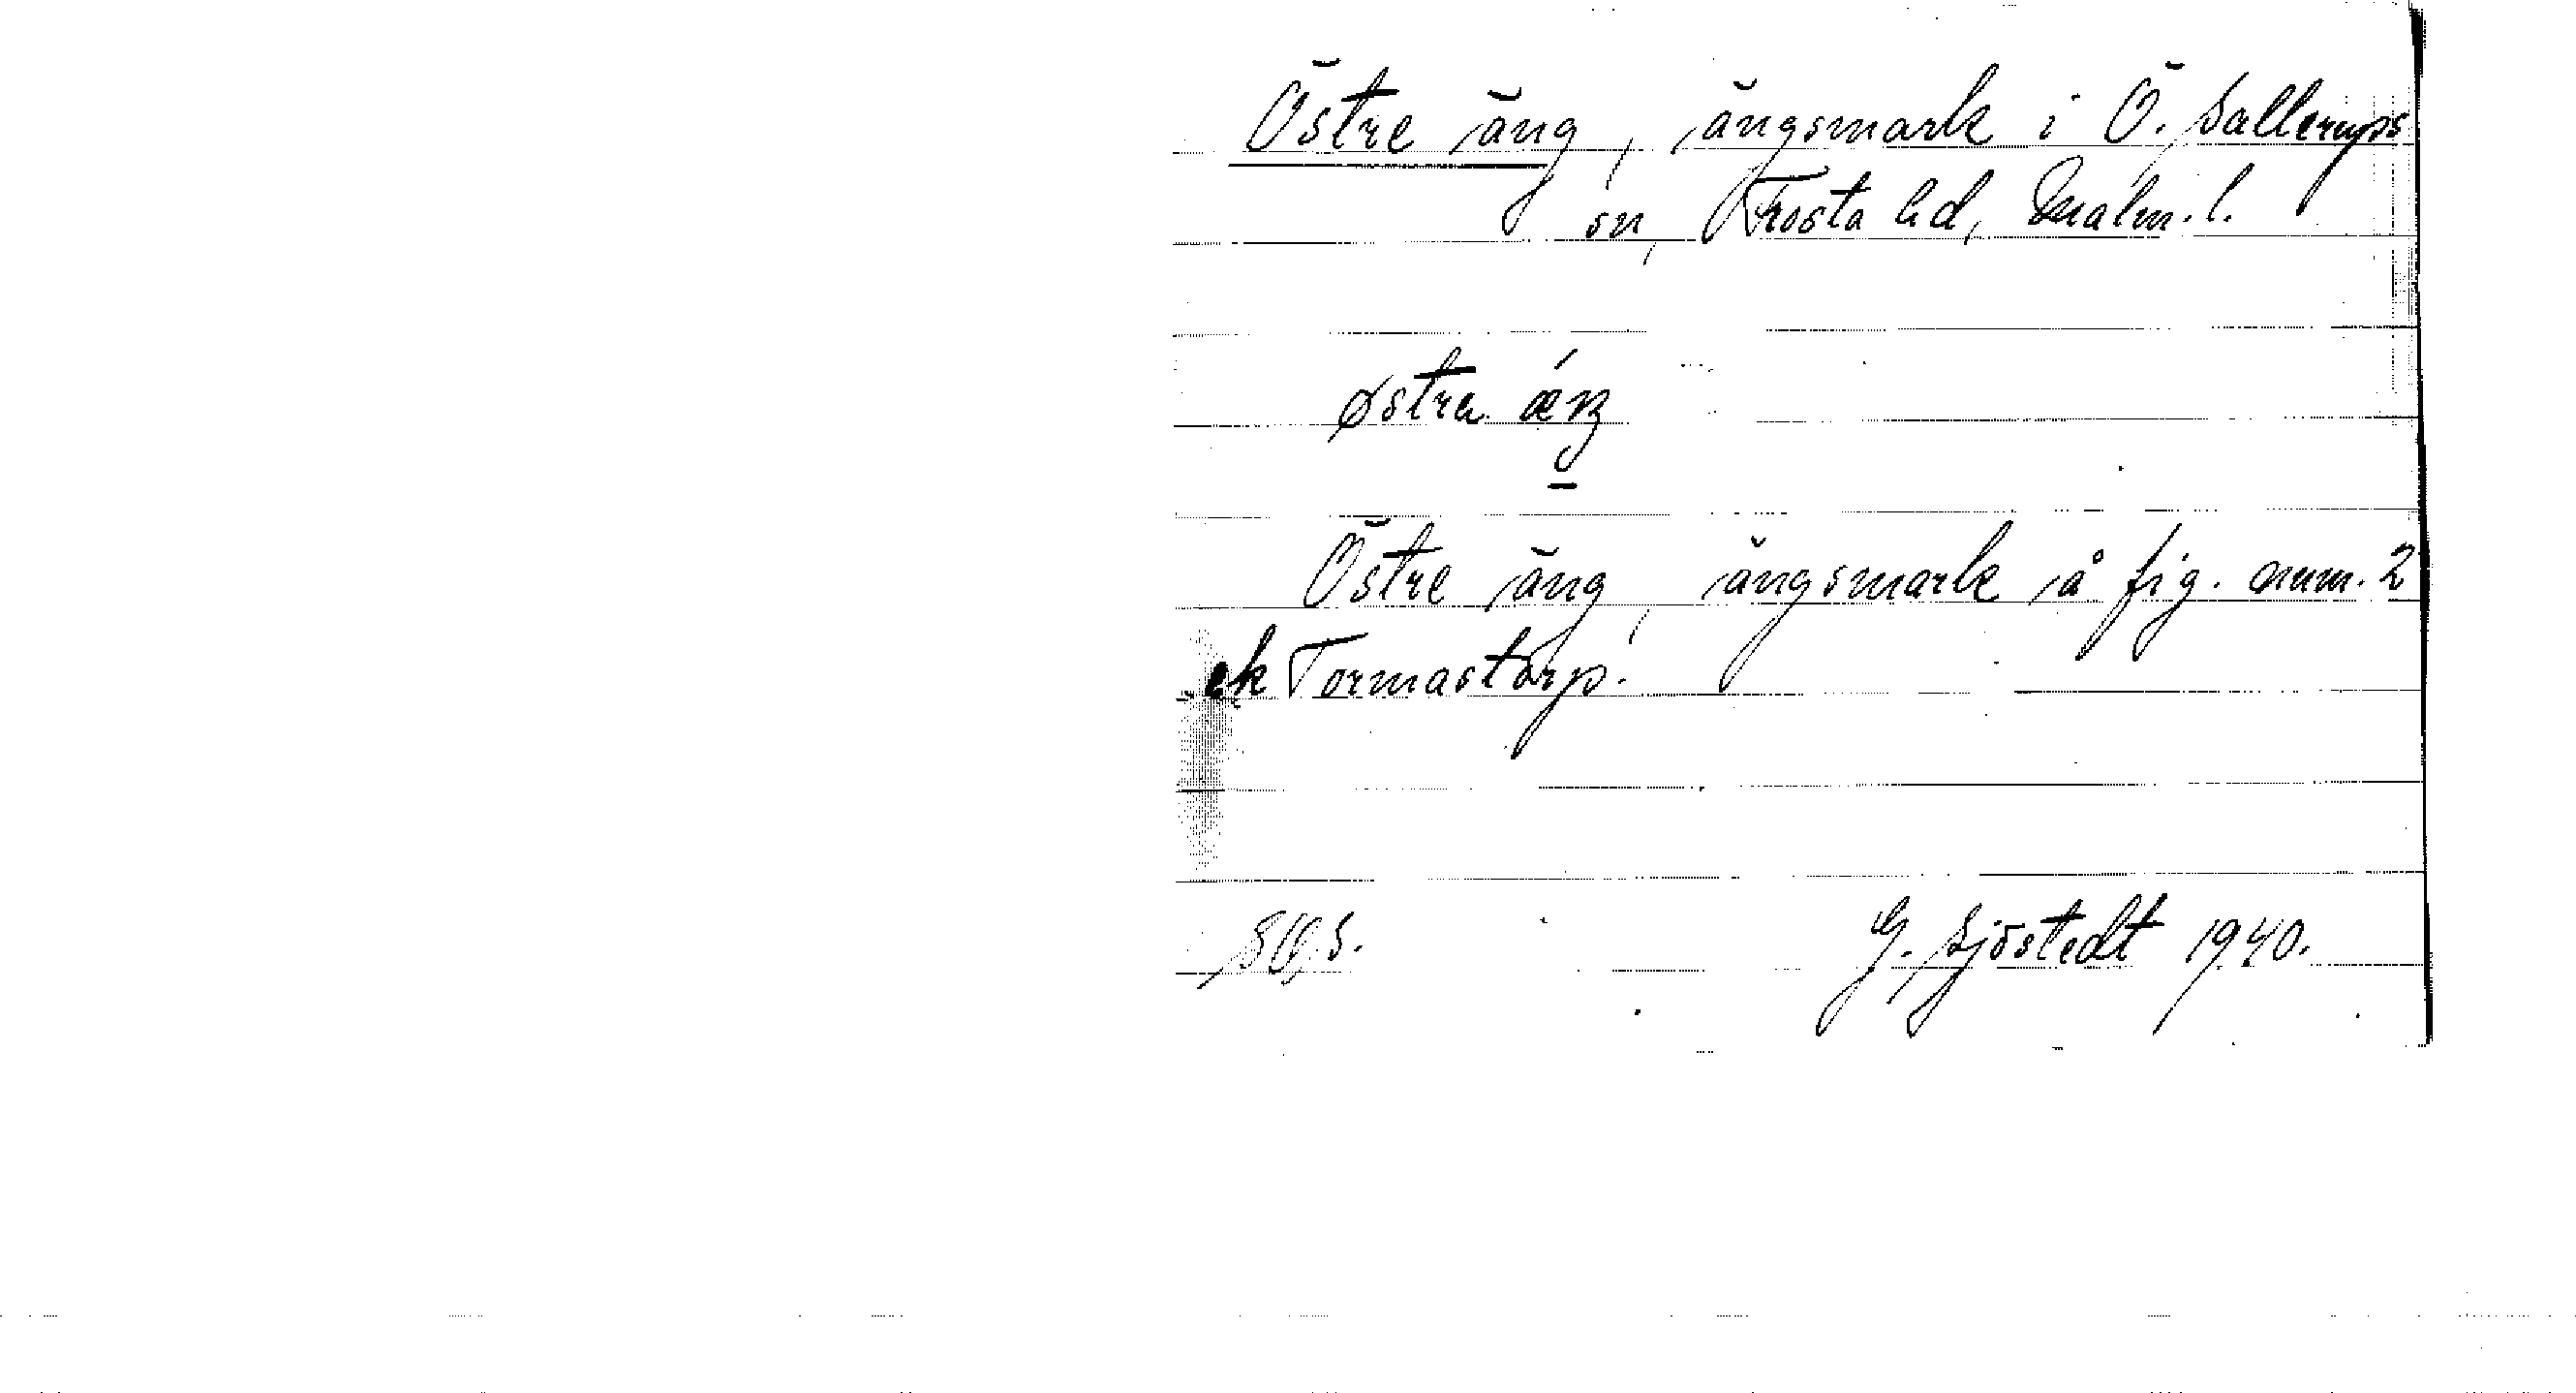 Östre äng, ängsmark i Ö. Sallerups
sn, Frosta hd, Malm. l.
østra ǽŋ
Östre äng, ängsmark å fig. num. 2
ek Tormastorp.
G. Sjöstedt 1940.